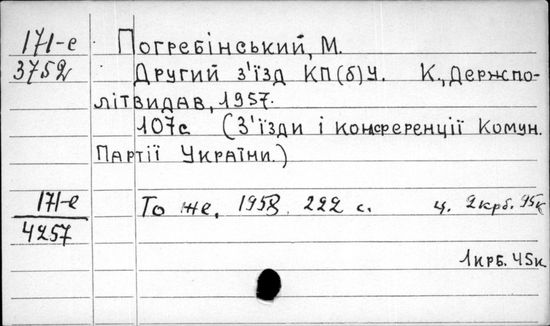 171-е Погребінський, М.
3752 Другий з'їзд КП(б)У. К., Держпо-
літвидав, 1957.
107с (З'їзди і конференції Комун.
Партії України.)
171-е То же, 1958. 222 с. ц. 2крб. 95к
4257
1крб. 45к